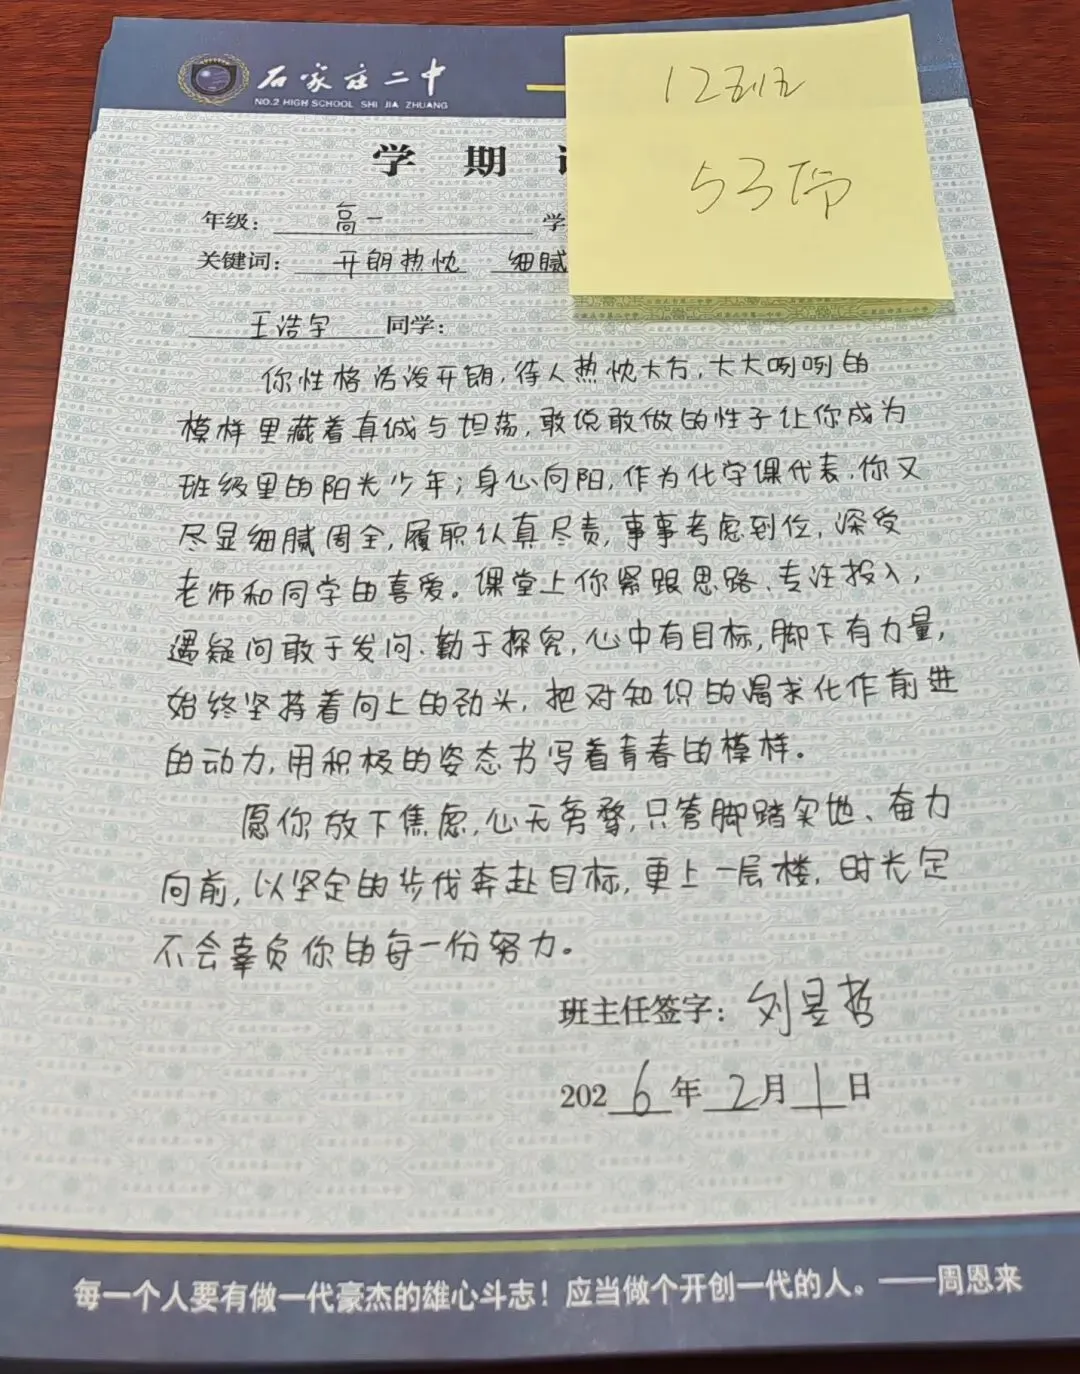 石家庄二中
NO.2 HIGH SCHOOL SHI JIA ZHUANG
12班
53份
学期
年级：高一 学
关键词：开朗热忱 细腻
王浩宇 同学：
你性格活泼开朗，待人热忱大方，大大咧咧的
模样里藏着真诚与坦荡，敢说敢做的性子让你成为
班级里的阳光少年；身心向阳，作为化学课代表，你又
尽显细腻周全，履职认真尽责，事事考虑到位，深受
老师和同学的喜爱。课堂上你紧跟思路、专注投入，
遇疑问敢于发问、勤于探究，心中有目标，脚下有力量，
始终坚持着向上的劲头，把对知识的渴求化作前进
的动力，用积极的姿态书写着青春的模样。
愿你放下焦虑，心无旁骛，只管脚踏实地、奋力
向前，以坚定的步伐奔赴目标，更上一层楼，时光定
不会辜负你的每一份努力。
班主任签字：刘昱哲
2026年2月1日
每一个人要有做一代豪杰的雄心斗志！应当做个开创一代的人。——周恩来